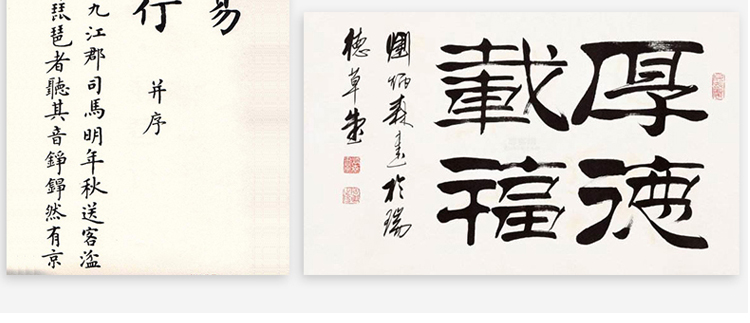 易
行 并序
九江郡司馬明年秋送客湓
琵琶者聽其音錚錚然有京
厚德
載福
劉炳森書於瑞
德草堂